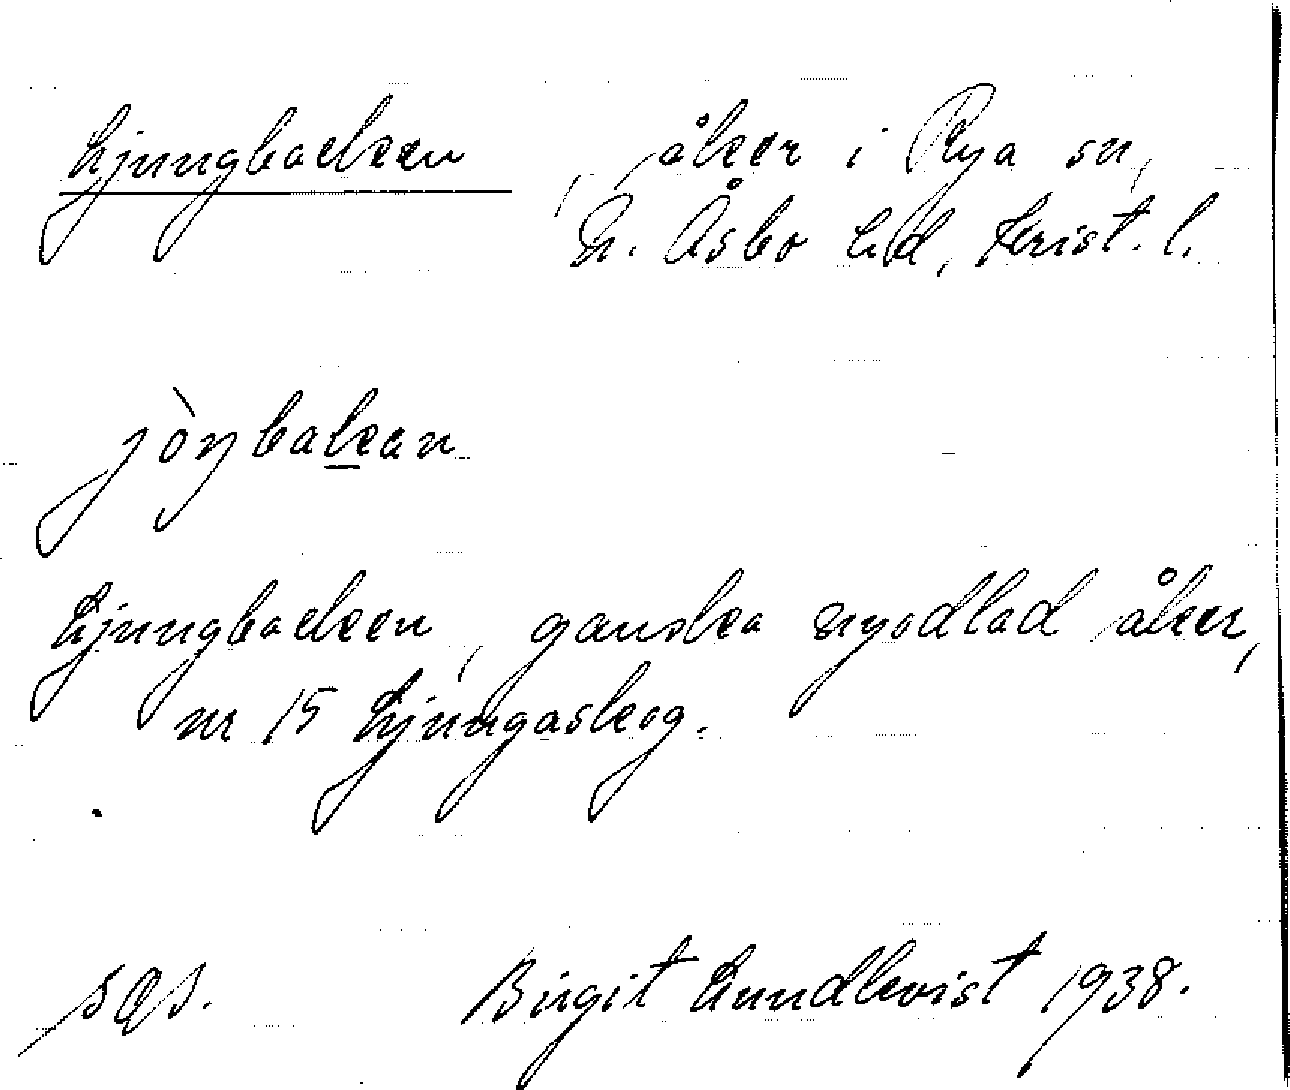 Ljungbacken, åker i Rya sn,
N. Åsbo hd, Krist. l.
jòŋbakan
Ljungbacken, ganska nyodlad åker,
nr 15 Ljungaskog.
Birgit Lundkvist 1938.